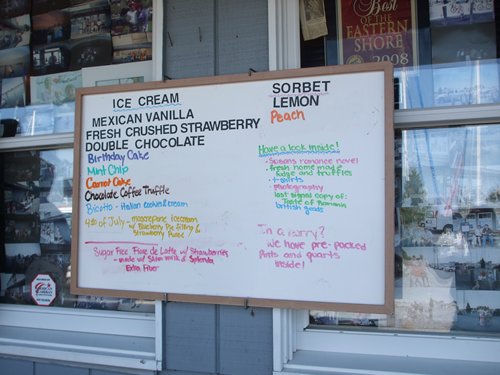 Best
OF THE
EASTERN
SHORE
2008
ICE CREAM
MEXICAN VANILLA
FRESH CRUSHED STRAWBERRY
DOUBLE CHOCOLATE
Birthday Cake
Mint Chip
Carrot Cake
Chocolate Coffee Truffle
Biscotto - Italian cookies & cream
4th of July - mascarpone icecream
w/ Blueberry Pie filling &
Strawberry Puree!
Sugar Free Fiore de Latte w/ Strawberries
- made w/ Skim milk & Splenda
Extra Fiber
SORBET
LEMON
Peach
Have a look inside!
- Susan's romance novel
- fresh home made
fudge and truffles
- t-shirts
- photography
last signed copy of:
Taste of Romania
british goods
In a hurry?
we have pre-packed
Pints and quarts
inside!